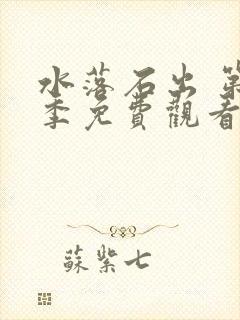 水落石出 第
季免費觀看
蘇紫七